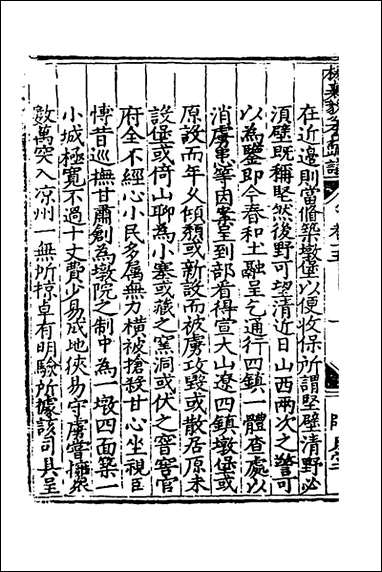 在近邊則當脩築墩堡以便收保所謂堅壁清野必
須壁既稱堅然後野可望清近日山西兩次之警可
以為鑒即今春和土融呈乞通行四鎮一體查處以
消虜患等因案呈到部看得宣大山遼四鎮墩堡或
原設而年久傾頹或新設而被虜攻毀或散居原未
設堡或倚山聊為小塞或藏之窯洞或伏之窨窖官
府全不經心小民多屬無力橫被搶殺甘心坐視臣
慱昔巡撫甘肅創為墩院之制中為一墩四面築一
小城極寬不過十丈費少易成地狹易守虜嘗擁衆
數萬突入凉州一無所掠卓有明驗所據該司具呈